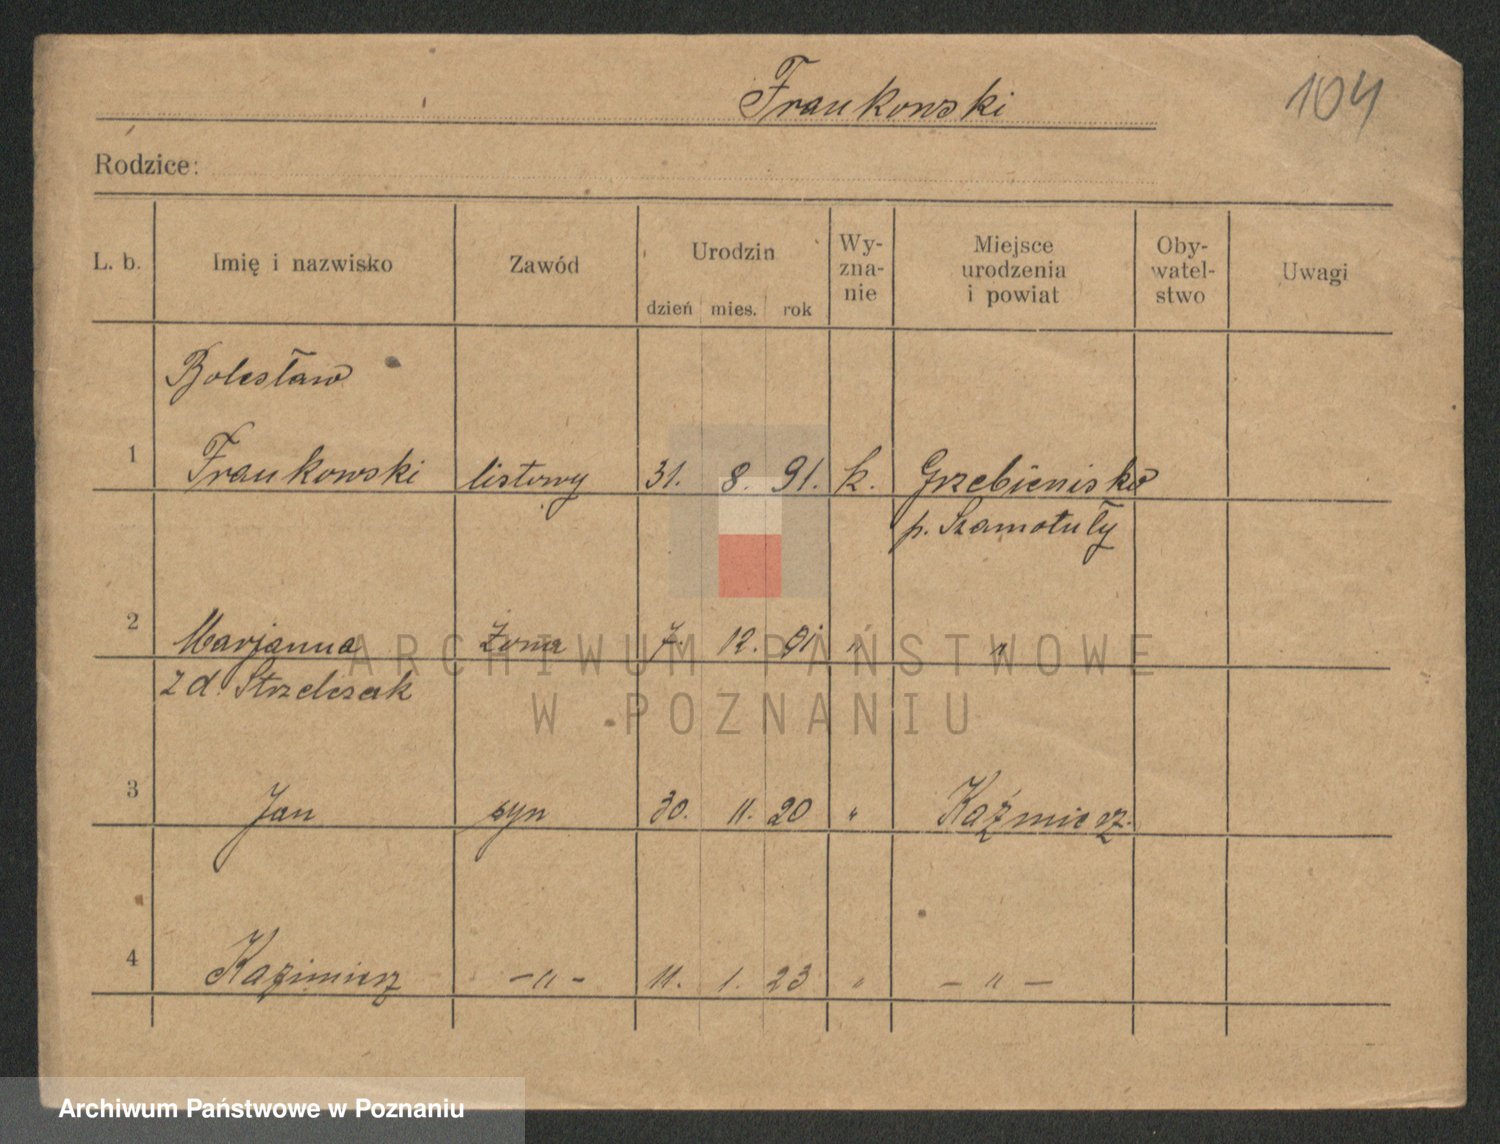 Fraukowski
104
Rodzice:
L. b. Imię i nazwisko Zawód Urodzin dzień mies. rok Wy-zna-nie Miejsce urodzenia i powiat Oby-watel-stwo Uwagi
Bolesław
1 Fraukowski listowy 31. 8. 91. k. Grzebienisko
p. Szamotuły
2 Marjanna żona 7. 12. 91 " "
z d. Strzelczak
3 Jan syn 30. 11. 20 " Kaźmierz.
4 Kazimierz -"- 11. 1. 23 " - " -
ARCHIWUM PAŃSTWOWE
W POZNANIU
Archiwum Państwowe w Poznaniu